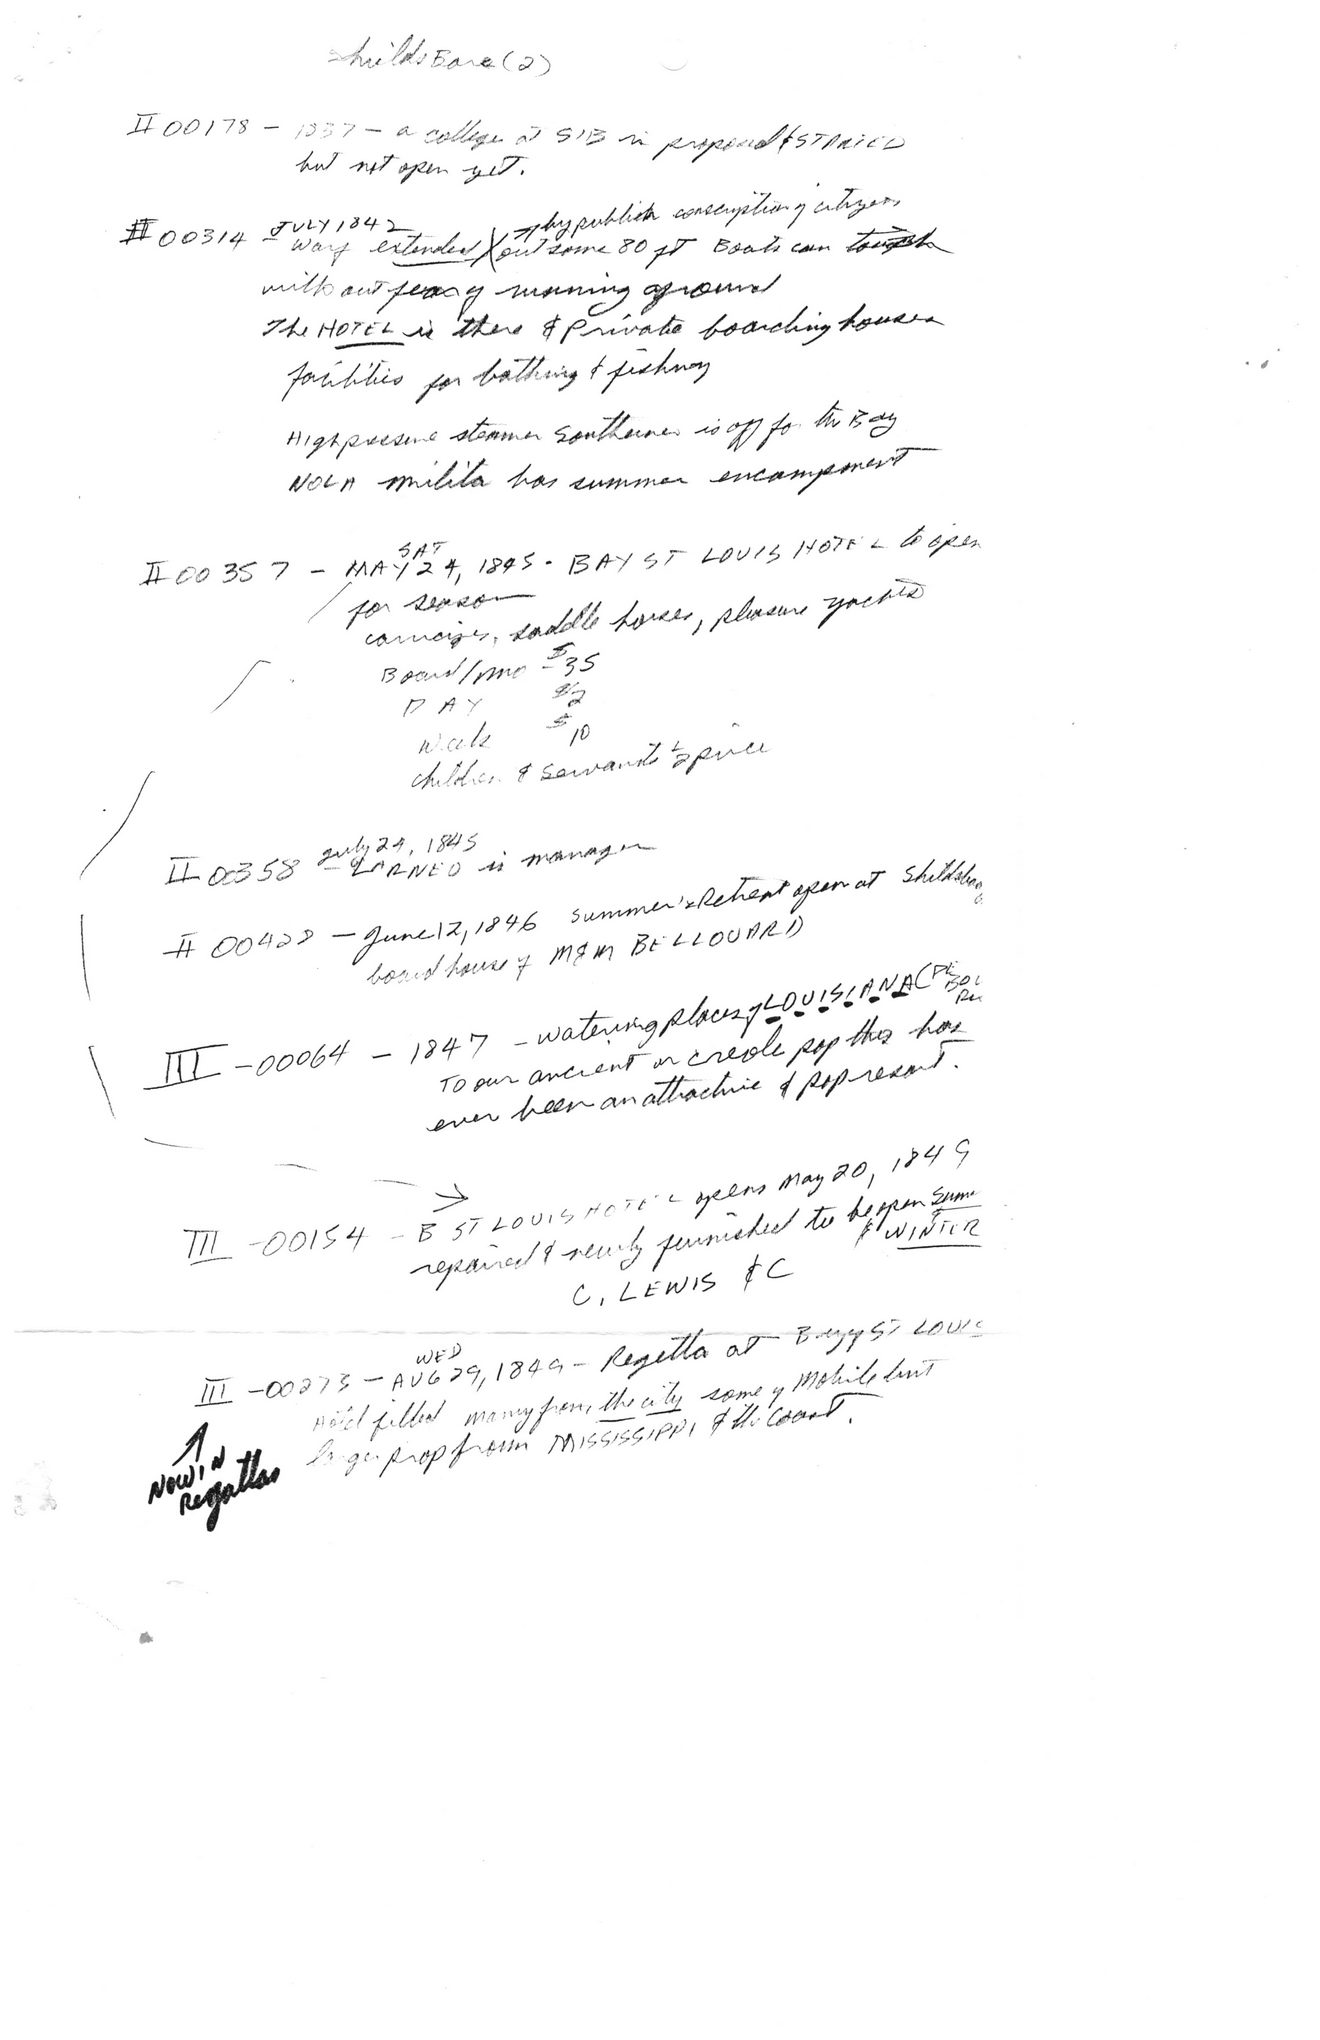 ShildsBoro (2)
II 00178 - 1837 - a college at S'B is proposed & STARTED
but not open yet.
II 00314 - JULY 1842
by publick conscription of citizens
Warf extended out some 80 ft Boats can touch
without fear of running aground
The HOTEL is there & private boarding houses
facilities for bathing & fishing
High pressure steamer Southerner is off for the Bay
NOLA milita has summer encampment
SAT
II 00357 - MAY 24, 1845 - BAY ST LOUIS HOTEL to open
for season
carraiges, saddle horses, pleasure yachts
Board/mo - $35
DAY $2
Week $10
children & servants ½ price
July 24, 1845
II 00358 - LARNED is manager
II 00428 - June 12, 1846 Summer's Retreat open at Shildsboro
board house of M&M BELLOUARD
III - 00064 - 1847 - watering places of LOUISIANA (DE BOW
To our ancient or creole pop this has
ever been an attractive & pop resort.
III - 00154 - B ST LOUIS HOTEL opens May 20, 1849
repaired & newly furnished to be open Summ
& WINTER
C. LEWIS & C
WED
III - 00273 - AUG 29, 1849 - Regetta at Bay ST LOUIS
Hotel filled many from the city some of Mobile but
larger prop from MISSISSIPPI & the Coast.
NOW IN
Regattas